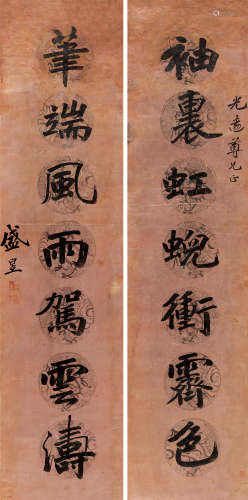 光遠尊兄正
袖裏虹蜺衝霽色
筆端風雨駕雲濤
盛昱